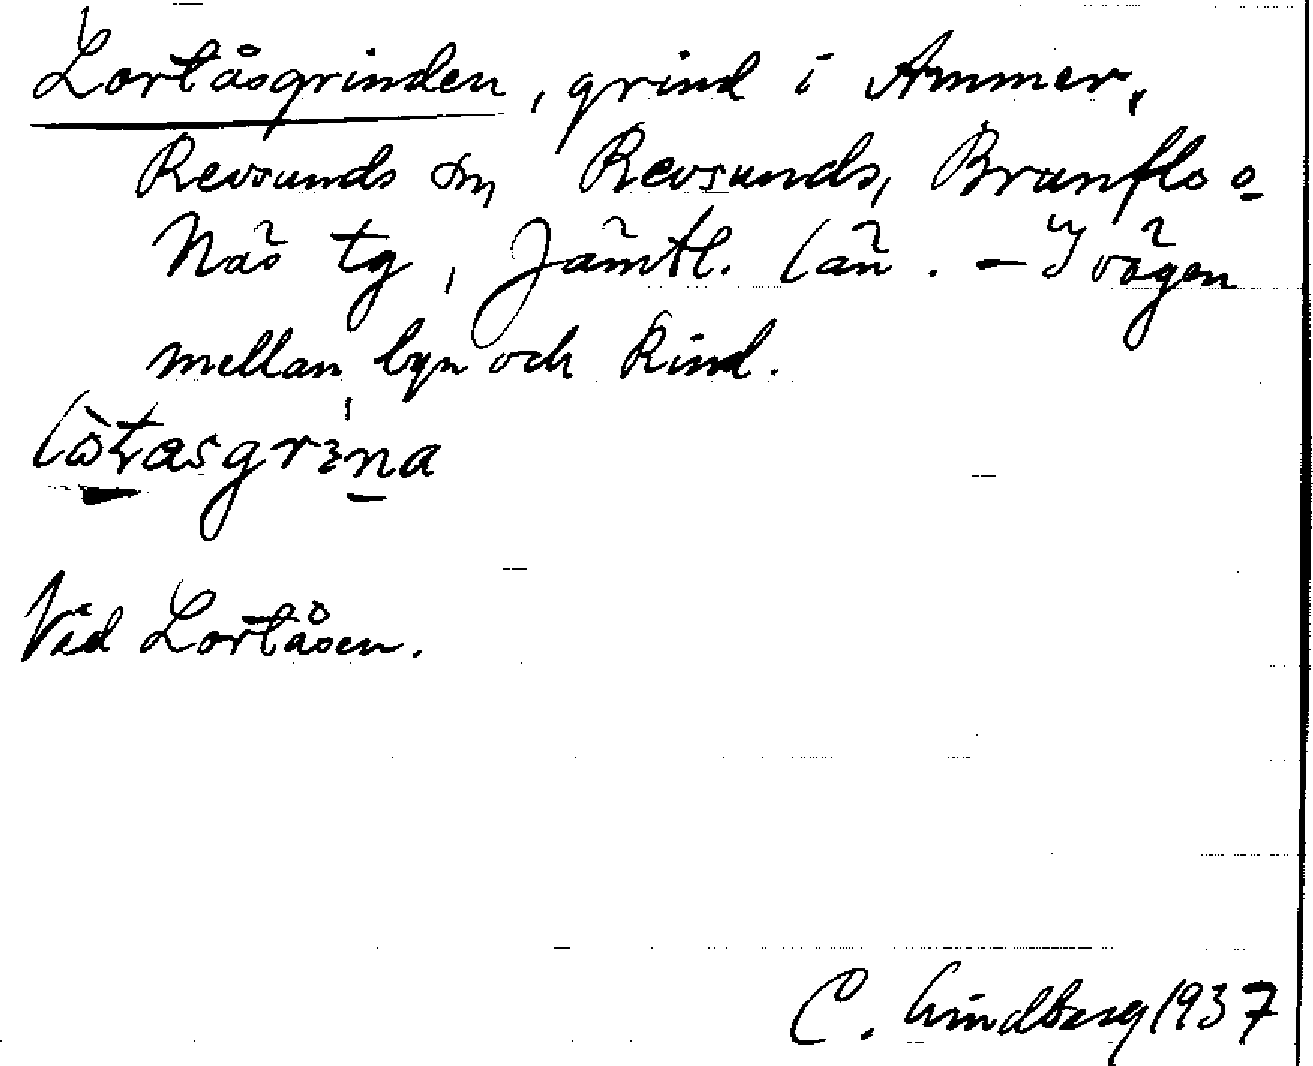 Lortåsgrinden, grind i Ammer,
Revsunds sn, Revsunds, Brunflo o
Näs tg, Jämtl. län. - I vägen
mellan byn och Rind.
Vid Lortåsen.
C. Lindberg 1937